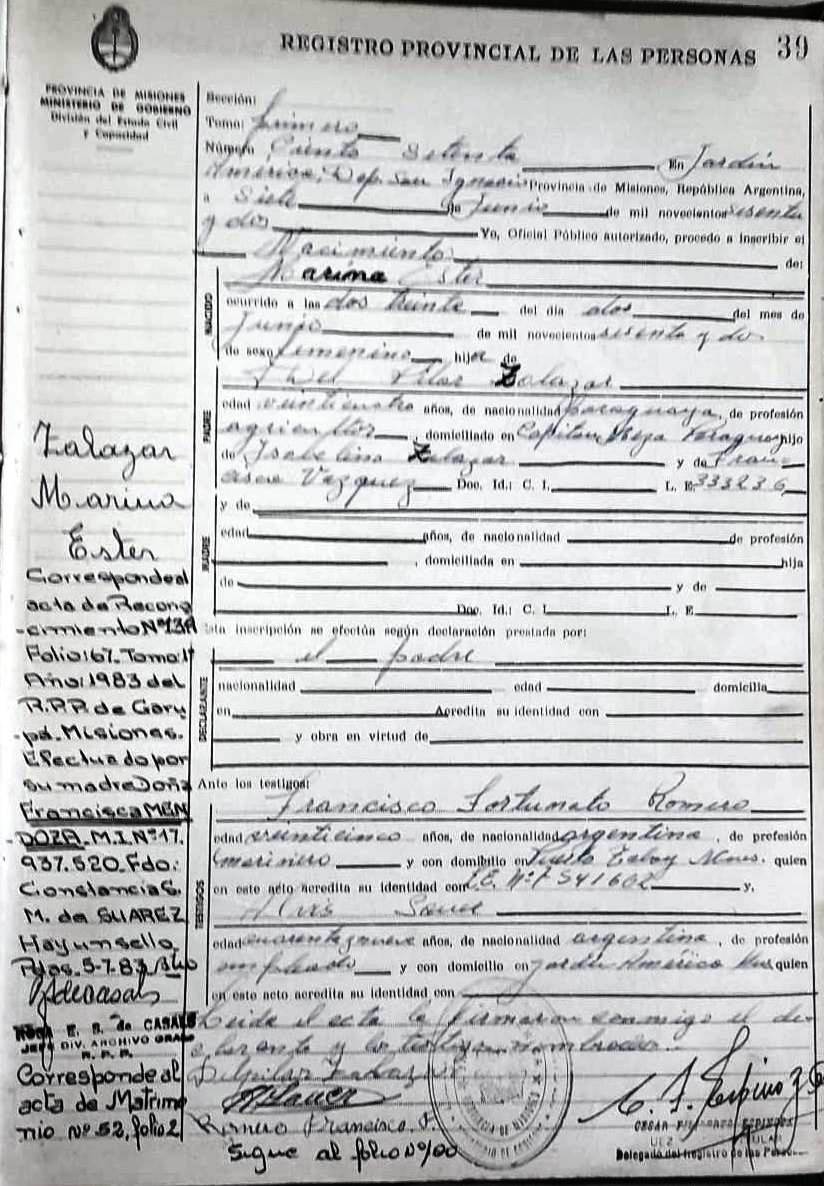 REGISTRO PROVINCIAL DE LAS PERSONAS 39
PROVINCIA DE MISIONES
MINISTERIO DE GOBIERNO
División del Estado Civil
y Capacidad
Sección:
Tomo: primero
Número Ciento setenta En Jardín
América, Dep. San Ignacio Provincia de Misiones, República Argentina,
a Siete de Junio de mil novecientos sesenta
y dos Yo, Oficial Público autorizado, procedo a inscribir el
Nacimiento de:
NACIDO
Marina Ester
ocurrido a las dos treinta del día dos del mes de
Junio de mil novecientos sesenta y dos
de sexo femenino hija de
PADRE
Del Pilar Zalazar
edad veinticuatro años, de nacionalidad paraguaya, de profesión
agricultor, domiciliado en Capitan Meza Paraguay hijo
de Isabelina Zalazar y de Fran-
cisco Vazquez Doc. Id.: C. I. L. E. 333236
y de
MADRE
edad años, de nacionalidad de profesión
, domiciliada en hija
de y de
Doc. Id.: C. I. L. E.
Esta inscripción se efectúa según declaración prestada por:
el padre
DECLARANTE
nacionalidad edad domicilia
en Acredita su identidad con
y obra en virtud de
Ante los testigos:
TESTIGOS
Francisco Fortunato Romero
edad veinticinco años, de nacionalidad argentina, de profesión
marinero y con domicilio en Puerto Mnes. quien
en este acto acredita su identidad con L.E. Nº 7541602 y,
edad cuarenta y nueve años, de nacionalidad argentina, de profesión
empleado y con domicilio en Jardín América quien
en este acto acredita su identidad con
Leida el acta la firmaron conmigo el de-
clarante y los testigos nombrados.
Del pilar Zalazar
Romero Francisco F.
Sigue al folio Nº 100
C. F. Espinoza
CESAR ESPINOZA
JUEZ TITULAR
Delegado del Registro de las Personas
Zalazar
Marina
Ester
Corresponde al
acta de Recono
-cimiento Nº 13A
Folio: 67. Tomo: 1º
Año: 1983 del
R.P.P. de Garu
-pá. Misiones.
Efectuado por
su madre Doña
Francisca MEN
-DOZA. M.I. Nº 17.
937.520. Fdo:
Constancia G.
M. de SUAREZ
Hay un sello.
Pdas. 5-7-83.
ROSA E. B. de CASALS
JEFE DIV. ARCHIVO GRAL
R. P. P.
Corresponde al
acta de Matrimo
nio Nº 52, folio 2